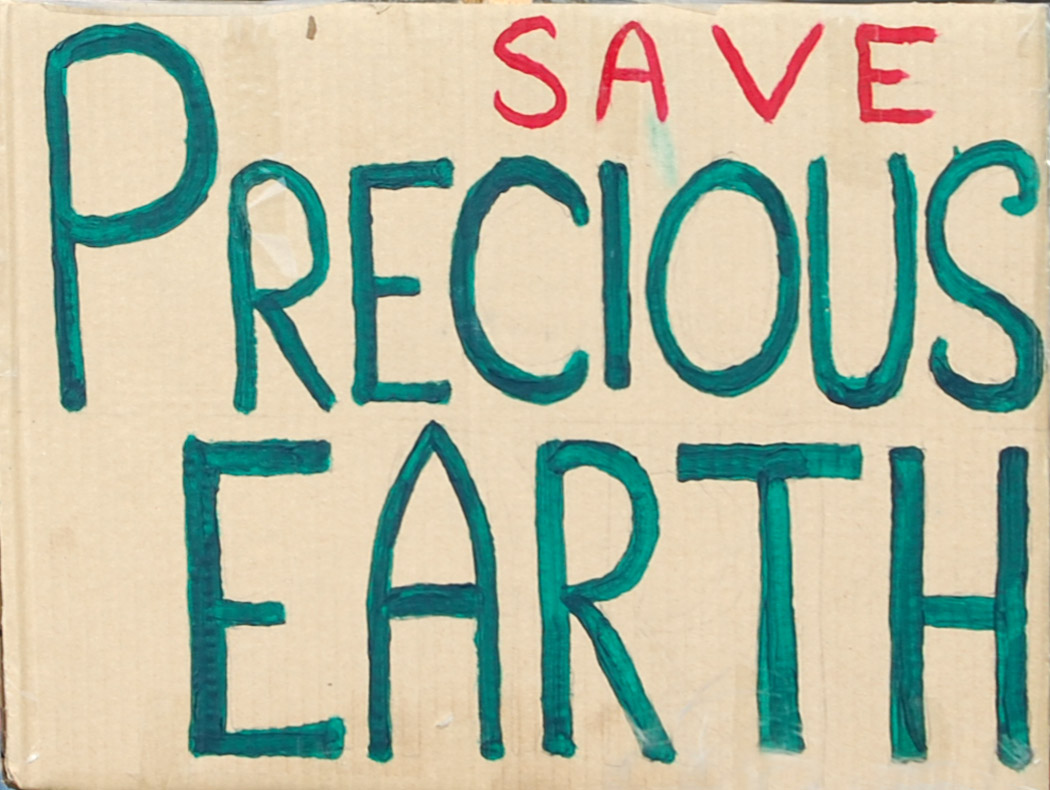 SAVE
PRECIOUS
EARTH